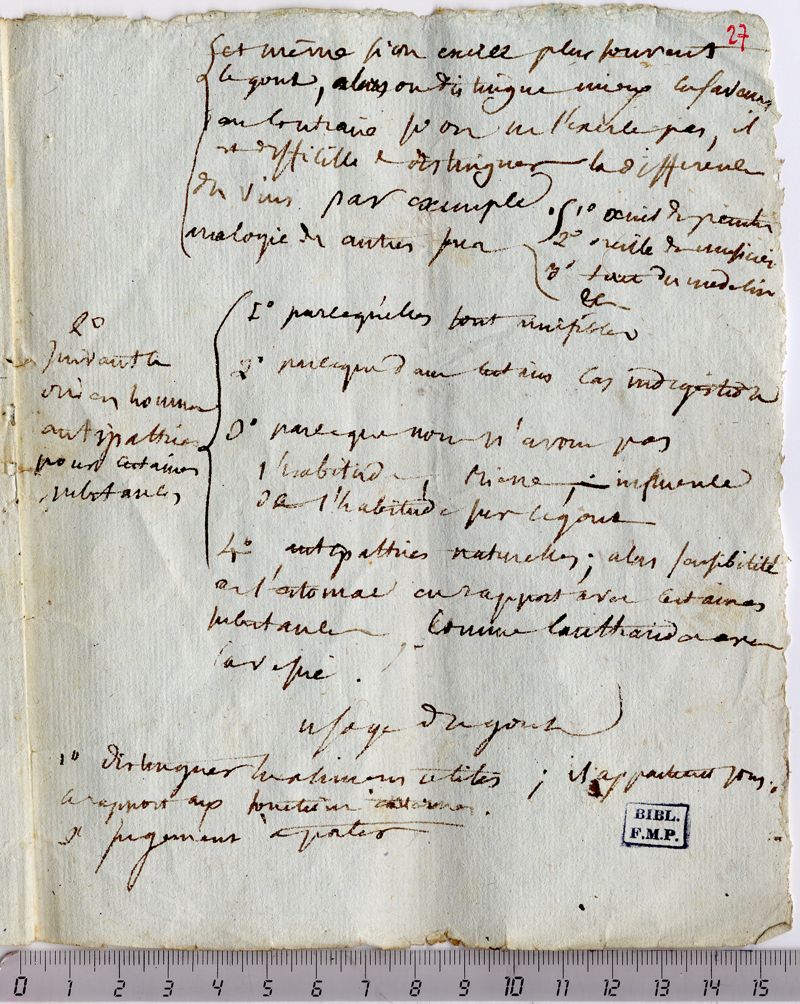 27
et même si on exerce plus souvent
le gout, alors on distingue mieux les saveurs
au contraire si on ne l'exerce pas, il
est difficille de distinguer la difference
du vins par exemple
analogie des autres sens
1° du peintre
2° oreille du musicien
3° tact du medecin
&c
2°
suivant le
antipathies
pour certaines
substances
1° parcequ'elles sont nuisibles
2° parceque dans certains cas indigestion
3° parceque nous n'avons pas
l'habitude, influence
de l'habitude sur le gout
4° antipathies naturelles; alors sensibilité
de l'estomac en rapport avec certaines
substances comme cantharides avec
la vessie.
usage du gout
1° distinguer les alimens utiles; il appartient sous
ce rapport aux fonctions
2° jugement à porter
BIBL.
F.M.P.
0 1 2 3 4 5 6 7 8 9 10 11 12 13 14 15